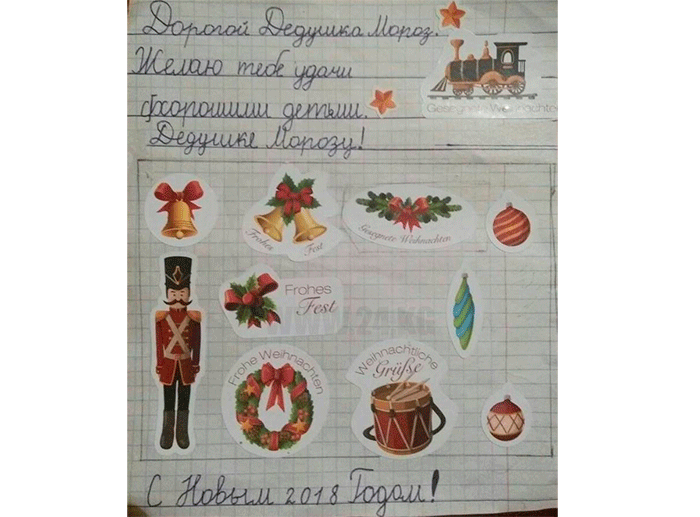 Дорогой Дедушка Мороз.
Желаю тебе удачи
с хорошими детьми.
Дедушке Морозу!
Gesegnete Weihnachten
Frohes Fest
Gesegnete Weihnachten
Frohes
Fest
Frohe Weihnachten
Weihnachtliche
Grüße
С Новым 2018 Годом!